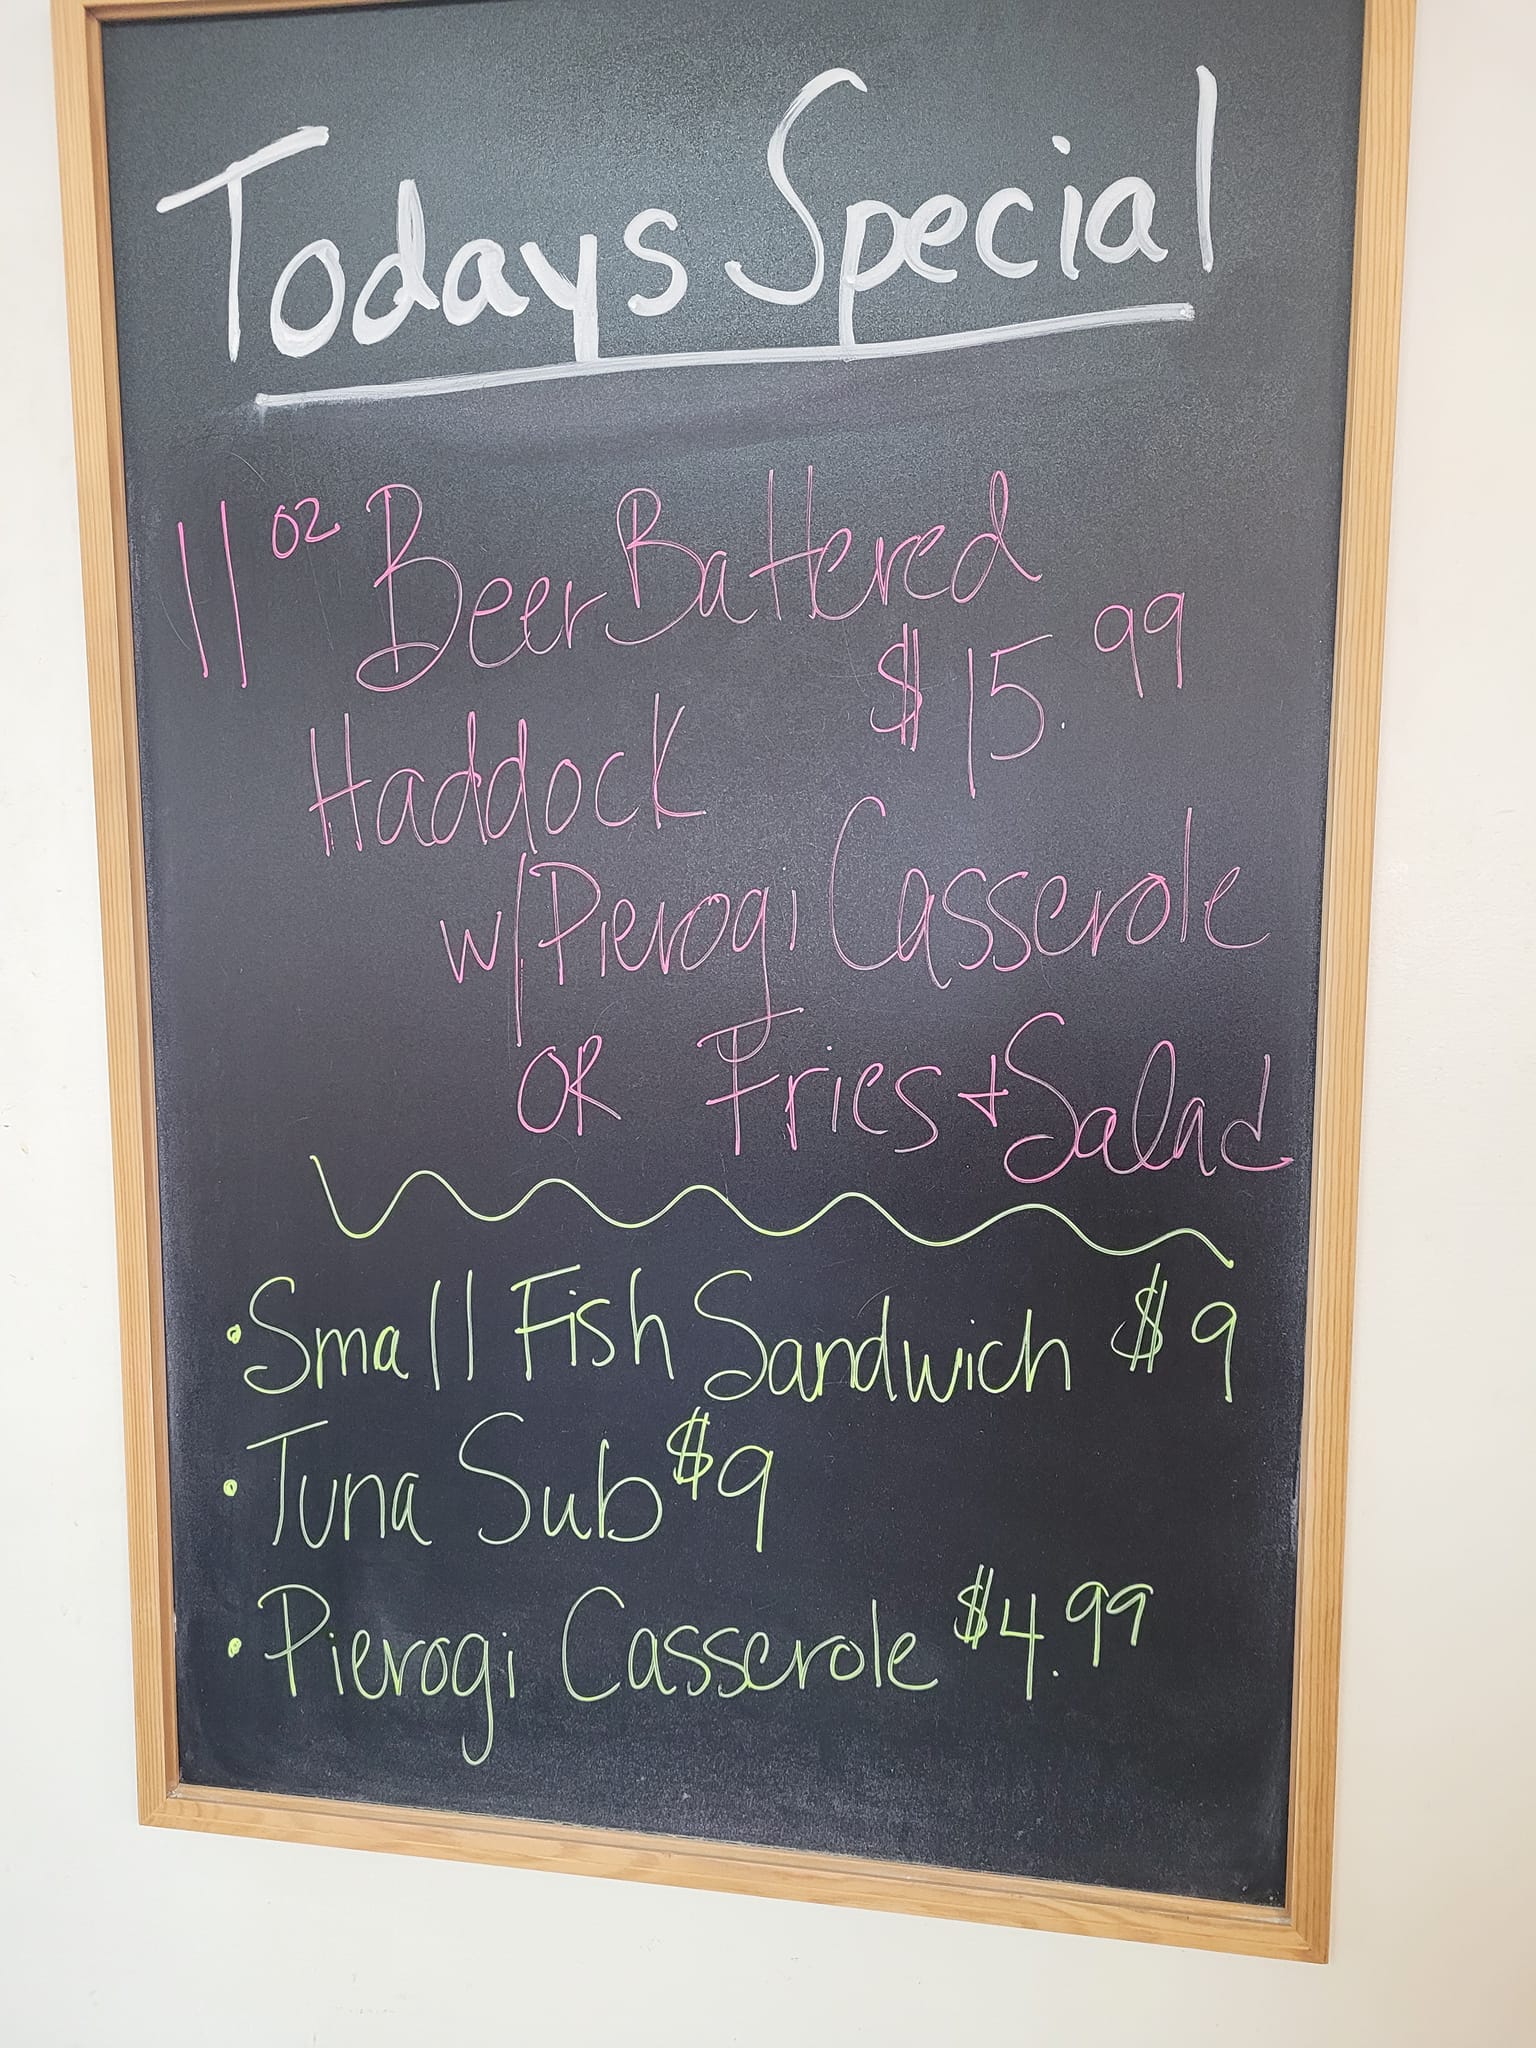 Todays Special
11 oz Beer Battered
Haddock $15.99
w/Pierogi Casserole
OR Fries + Salad
• Small Fish Sandwich $9
• Tuna Sub $9
• Pierogi Casserole $4.99